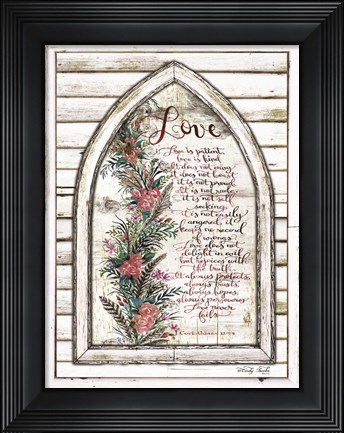 Love
Love is patient,
love is kind
It does not envy
it does not boast
it is not proud
It is not rude
it is not self
seeking,
it is not easily
angered, it
keeps no record
of wrongs
Love does not
delight in evil
but rejoices with
the truth.
It always protects,
always trusts,
always hopes,
always perseveres
Love never
fails
Corinthians